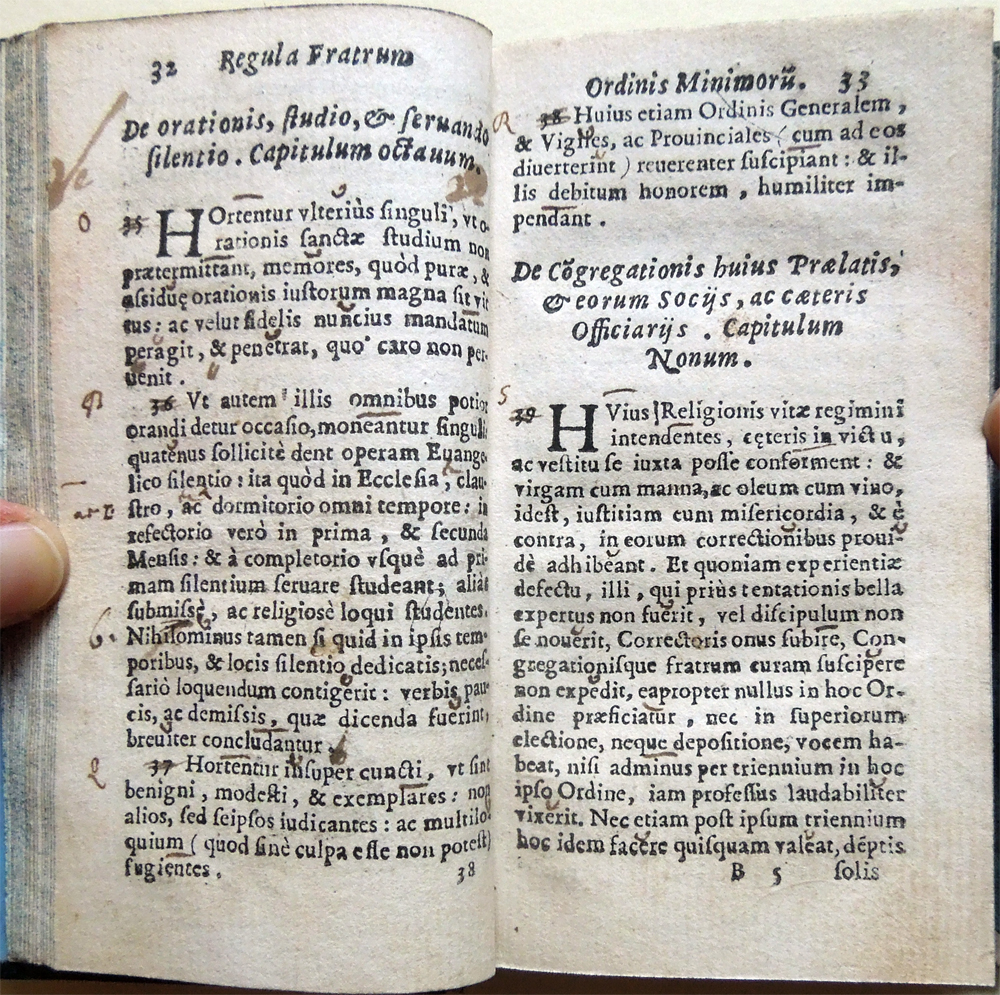 32 Regula Fratrum
De orationis, ſtudio, & ſeruando
ſilentio. Capitulum octauum.
O
35 HOrtentur vlteriùs ſinguli, vt o-
rationis ſanctæ ſtudium non
prætermittant, memores, quòd puræ, &
aſsiduę orationis iuſtorum magna ſit vir
tus: ac velut fidelis nuncius mandatum
peragit, & penetrat, quo caro non per-
uenit.
P
36 Vt autem illis omnibus potior
orandi detur occaſio, moneantur ſinguli,
quatenus ſollicitè dent operam Euange-
lico ſilentio: ita quòd in Eccleſia, clau-
ſtro, ac dormitorio omni tempore: in
refectorio verò in prima, & ſecunda
Menſis: & à completorio vſquè ad pri-
mam ſilentium ſeruare ſtudeant; aliàs
ſubmiſsè, ac religiosè loqui ſtudentes.
Nihilominus tamen ſi quid in ipſis tem-
poribus, & locis ſilentio dedicatis; neceſ-
ſariò loquendum contigerit: verbis pau-
cis, ac demiſsis, quæ dicenda fuerint,
breuiter concludantur
Q
37 Hortentur inſuper cuncti, vt ſint
benigni, modeſti, & exemplares: non
alios, ſed ſeipſos iudicantes: ac multilo-
quium (quod ſinè culpa eſſe non poteſt)
fugientes.
38
Ordinis Minimorũ. 33
R
38 Huius etiam Ordinis Generalem,
& Vigiles, ac Prouinciales (cum ad eos
diuerterint) reuerenter ſuſcipiant: & il-
lis debitum honorem, humiliter im-
pendant.
De Cõgregationis huius Prælatis,
& eorum Socijs, ac cæteris
Officiarijs. Capitulum
Nonum.
S
39 HVius Religionis vitæ regimini
intendentes, cęteris in victu,
ac veſtitu ſe iuxta poſſe conforment: &
virgam cum manna, ac oleum cum vino,
ideſt, iuſtitiam cum miſericordia, & è
contra, in eorum correctionibus proui-
dè adhibeant. Et quoniam experientiæ
defectu, illi, qui priùs tentationis bella
expertus non fuerit, vel diſcipulum non
ſe nouerit, Correctoris onus ſubire, Con-
gregationiſque fratrum curam ſuſcipere
non expedit, eapropter nullus in hoc Or-
dine præficiatur, nec in ſuperiorum
electione, neque depoſitione, vocem ha-
beat, niſi adminus per triennium in hoc
ipſo Ordine, iam profeſſus laudabiliter
vixerit. Nec etiam poſt ipſum triennium
hoc idem facere quiſquam valeat, dẽptis
B 5 ſolis